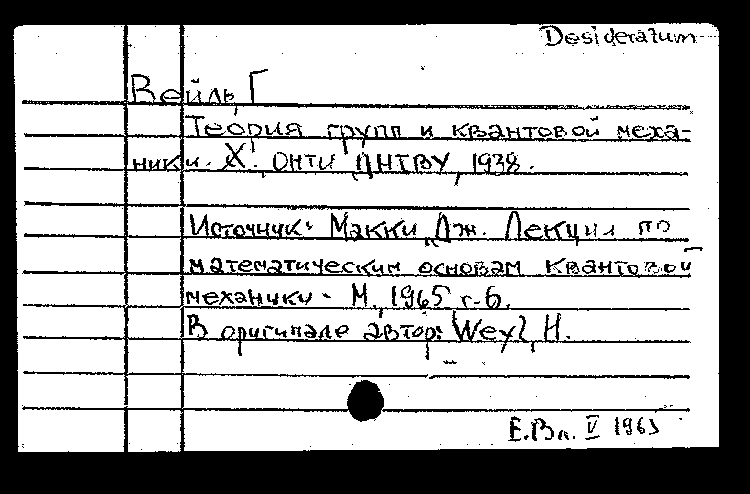 Desideratum
Вейль, Г
Теория групп и квантовой меха-
ники. Х., ОНТИ, ДНТВУ, 1938.
Источник: Макки, Дж. Лекции по
математическим основам квантовой
механики. М., 1965 г.
В оригинале автор: Weyl, H.
Е.Вл. V 1965